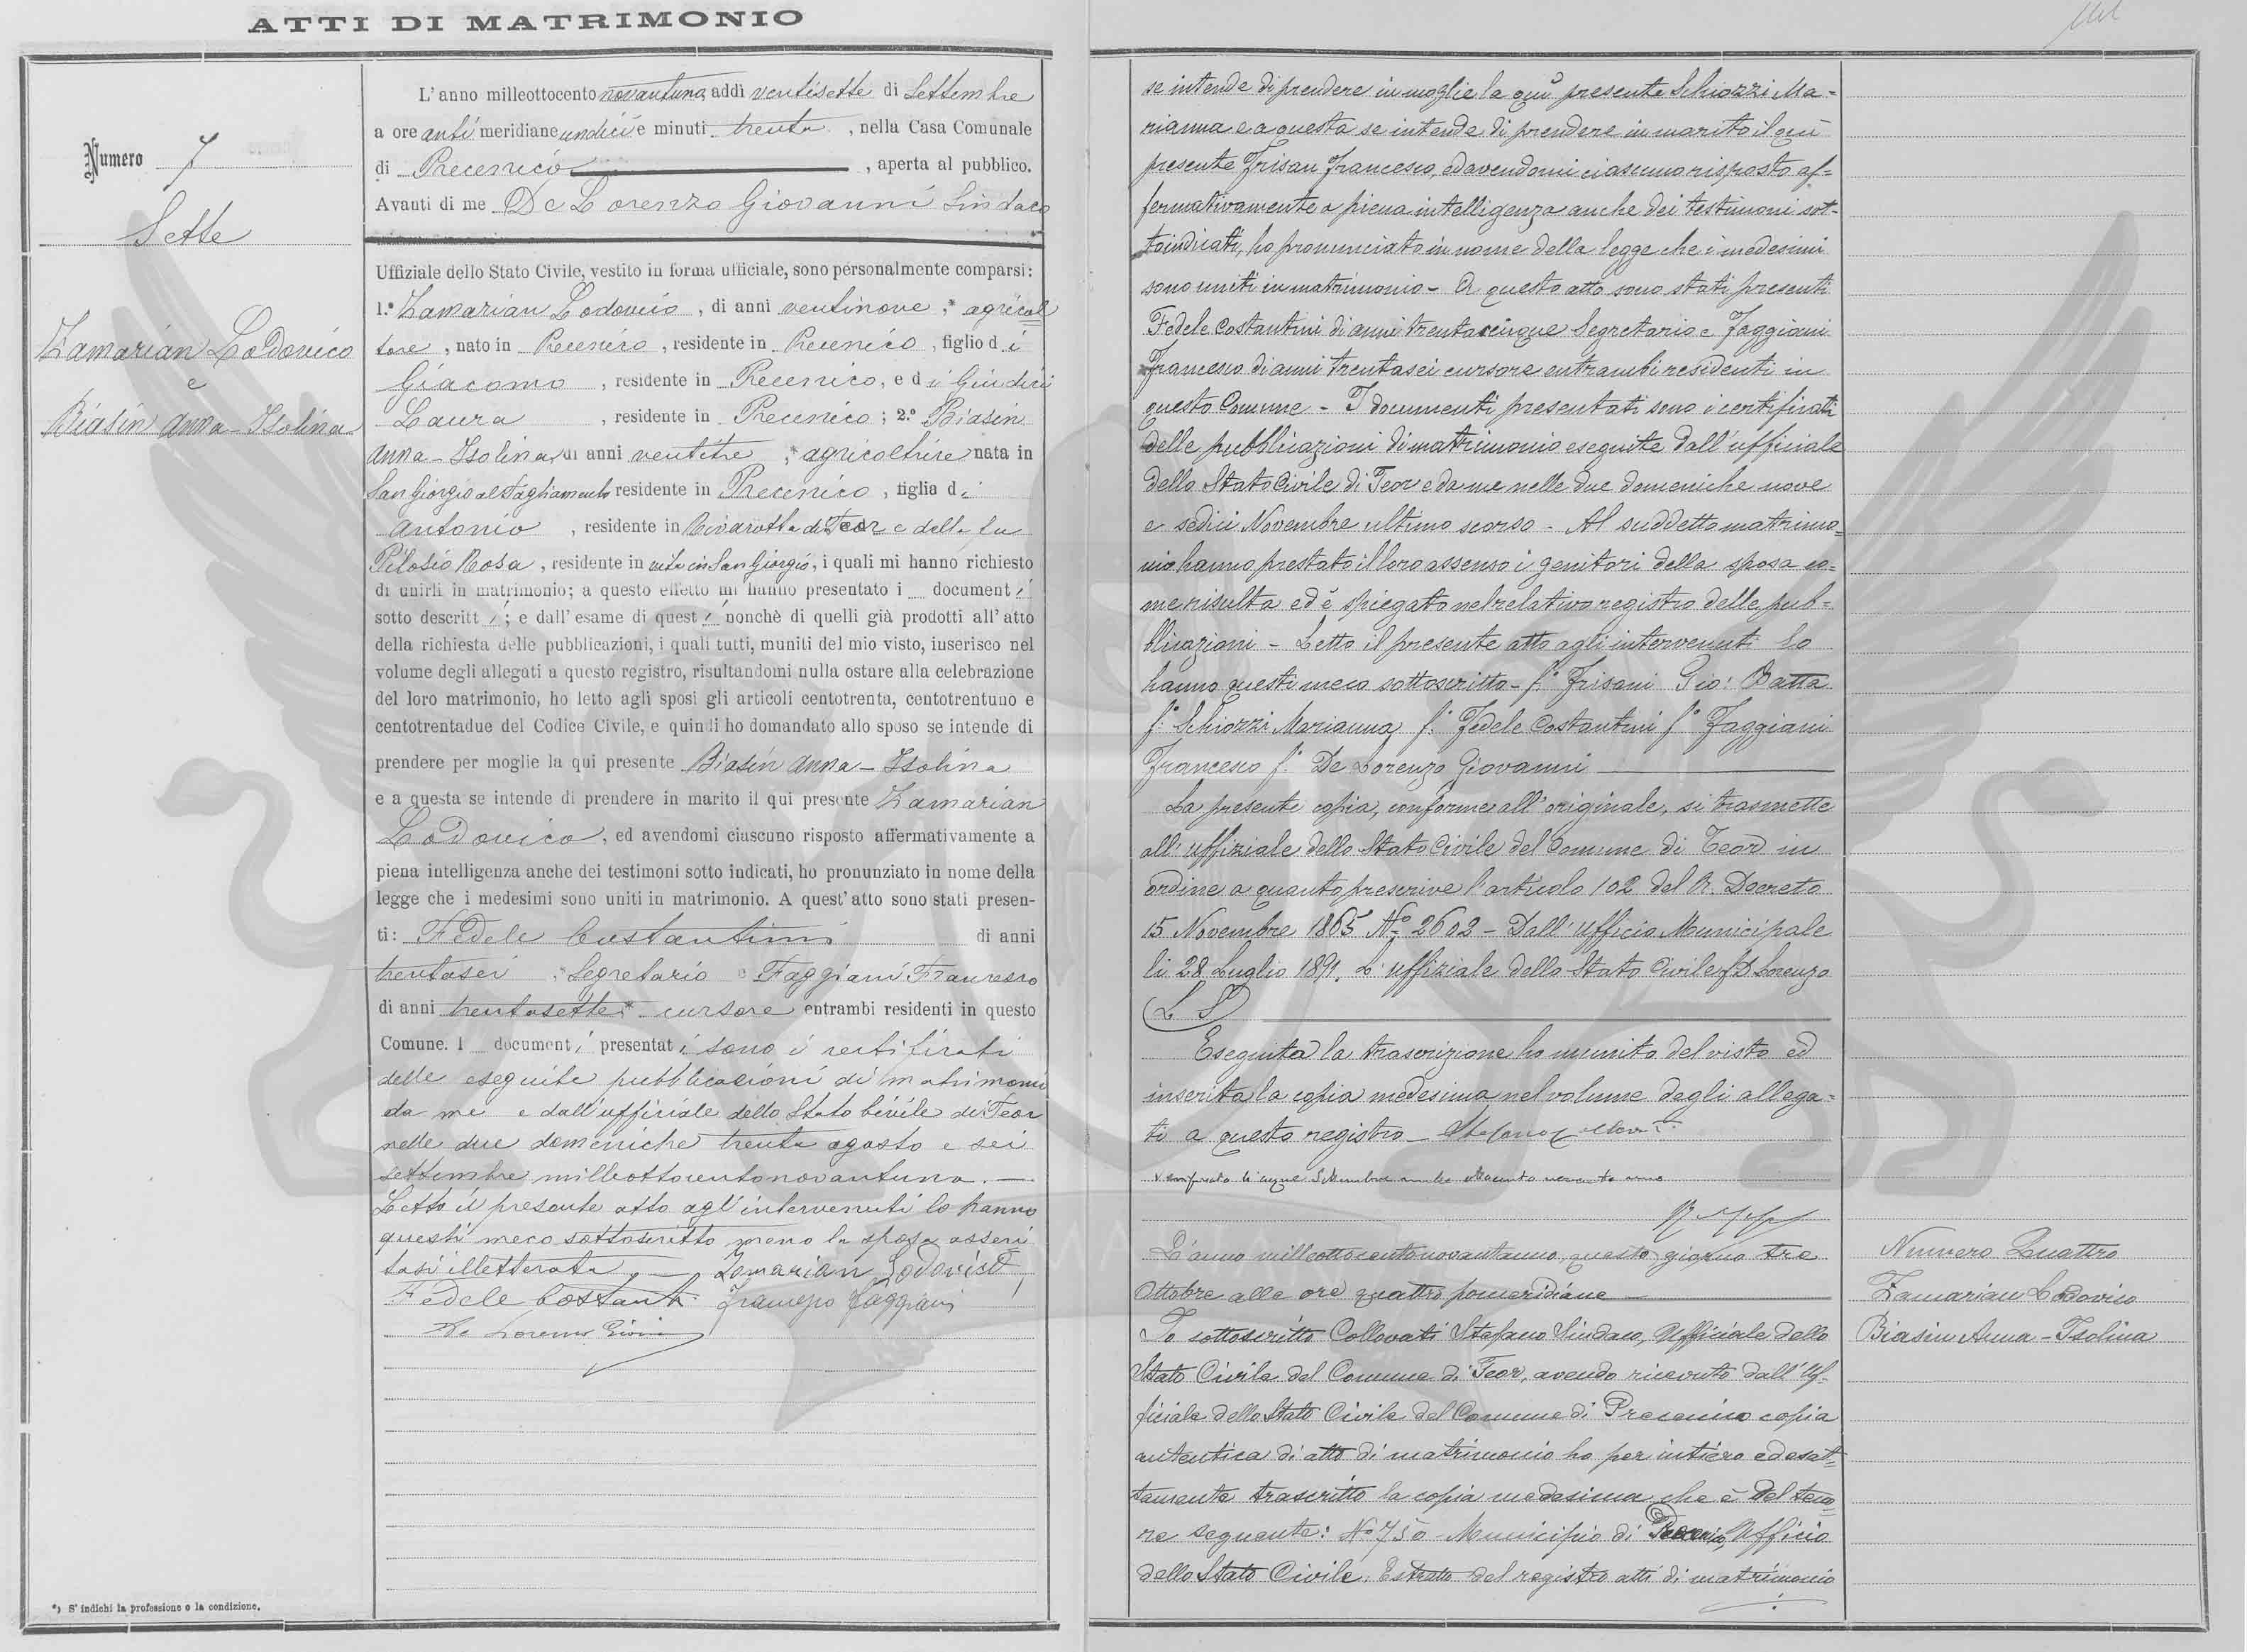 ATTI DI MATRIMONIO
Numero 7
Sette
Zamarian Lodovico
e
Biasin Anna-Isolina
*) S'indichi la professione o la condizione.
L'anno milleottocento novantuno, addì ventisette di Settembre
a ore anti meridiane undici e minuti trenta, nella Casa Comunale
di Precenico, aperta al pubblico.
Avanti di me De Lorenzo Giovanni Sindaco
Uffiziale dello Stato Civile, vestito in forma ufficiale, sono personalmente comparsi:
1.° Zamarian Lodovico, di anni ventinove, * agricol
tore, nato in Precenico, residente in Precenico, figlio di
Giacomo, residente in Precenico, e di Giudici
Laura, residente in Precenico; 2.° Biasin
Anna-Isolina, di anni ventitre, * agricoltrice nata in
San Giorgio al Tagliamento residente in Precenico, figlia di
Antonio, residente in Rivarotta di Teor e della fu
Pilosio Rosa, residente in vita in San Giorgio, i quali mi hanno richiesto
di unirli in matrimonio; a questo effetto mi hanno presentato i documenti
sotto descritti; e dall'esame di questi nonchè di quelli già prodotti all'atto
della richiesta delle pubblicazioni, i quali tutti, muniti del mio visto, inserisco nel
volume degli allegati a questo registro, risultandomi nulla ostare alla celebrazione
del loro matrimonio, ho letto agli sposi gli articoli centotrenta, centotrentuno e
centotrentadue del Codice Civile, e quindi ho domandato allo sposo se intende di
prendere per moglie la qui presente Biasin Anna-Isolina
e a questa se intende di prendere in marito il qui presente Zamarian
Lodovico, ed avendomi ciascuno risposto affermativamente a
piena intelligenza anche dei testimoni sotto indicati, ho pronunziato in nome della
legge che i medesimi sono uniti in matrimonio. A quest'atto sono stati presen-
ti: Fedele Costantini di anni
trentasei, * Segretario e Faggiani Francesco
di anni trentasette, * cursore entrambi residenti in questo
Comune. I documenti presentati sono i certificati
delle eseguite pubblicazioni di matrimonio
da me e dall'ufficiale dello Stato Civile di Teor
nelle due domeniche trenta agosto e sei
settembre milleottocentonovantuno. —
Letto il presente atto agl'intervenuti lo hanno
questi meco sottoscritto meno la sposa asseri
tasi illetterata. — Zamarian Lodovico
Fedele Costanti Francesco Faggiani
De Lorenzo Giovni
se intende di prendere in moglie la quì presente Schiozzi Ma-
rianna e a questa se intende di prendere in marito il quì
presente Frisan Francesco, ed avendomi ciascuno risposto af-
fermativamente a piena intelligenza anche dei testimoni sot-
toindicati, ho pronunciato in nome della legge che i medesimi
sono uniti in matrimonio - A questo atto sono stati presenti
Fedele Costantini di anni trentacinque Segretario e Faggiani
Francesco di anni trentasei cursore entrambi residenti in
questo Comune - I documenti presentati sono i certificati
delle pubblicazioni di matrimonio eseguite dall'ufficiale
dello Stato Civile di Teor e da me nelle due domeniche nove
e sedici Novembre ultimo scorso - Al suddetto matrimo-
nio hanno prestato il loro assenso i genitori della sposa co-
me risulta ed è spiegato nel relativo registro delle pub-
blicazioni - Letto il presente atto agli intervenuti lo
hanno questi meco sottoscritto - f.° Frisani Gio: Batta
f.° Schiozzi Marianna f.° Fedele Costantini f.° Faggiani
Francesco f.° De Lorenzo Giovanni
La presente copia, conforme all'originale, si trasmette
all'uffiziale dello Stato Civile del Comune di Teor in
ordine a quanto prescrive l'articolo 102 del R. Decreto
15 Novembre 1865 N° 2602 - Dall'ufficio Municipale
li 28 Luglio 1891. L'uffiziale dello Stato Civile f° D Lorenzo
(L S)
Eseguita la trascrizione ho munito del visto ed
inserita la copia medesima nel volume degli allega-
ti a questo registro
L'anno milleottocentonovantauno, questo giorno tre
Ottobre alle ore quattro pomeridiane
Io sottoscritto Collovati Stefano Sindaco, Ufficiale dello
Stato Civile del Comune di Teor, avendo ricevuto dall'Uf-
ficiale dello Stato Civile del Comune di Precenico copia
autentica di atto di matrimonio ho per intiero ed esat-
tamente trascritto la copia medesima che è del teno-
re seguente: N° 750 Municipio di Precenico, Ufficio
dello Stato Civile. Estratto del registro atti di matrimonio
Numero Quattro
Zamarian Lodovico
Biasin Anna-Isolina